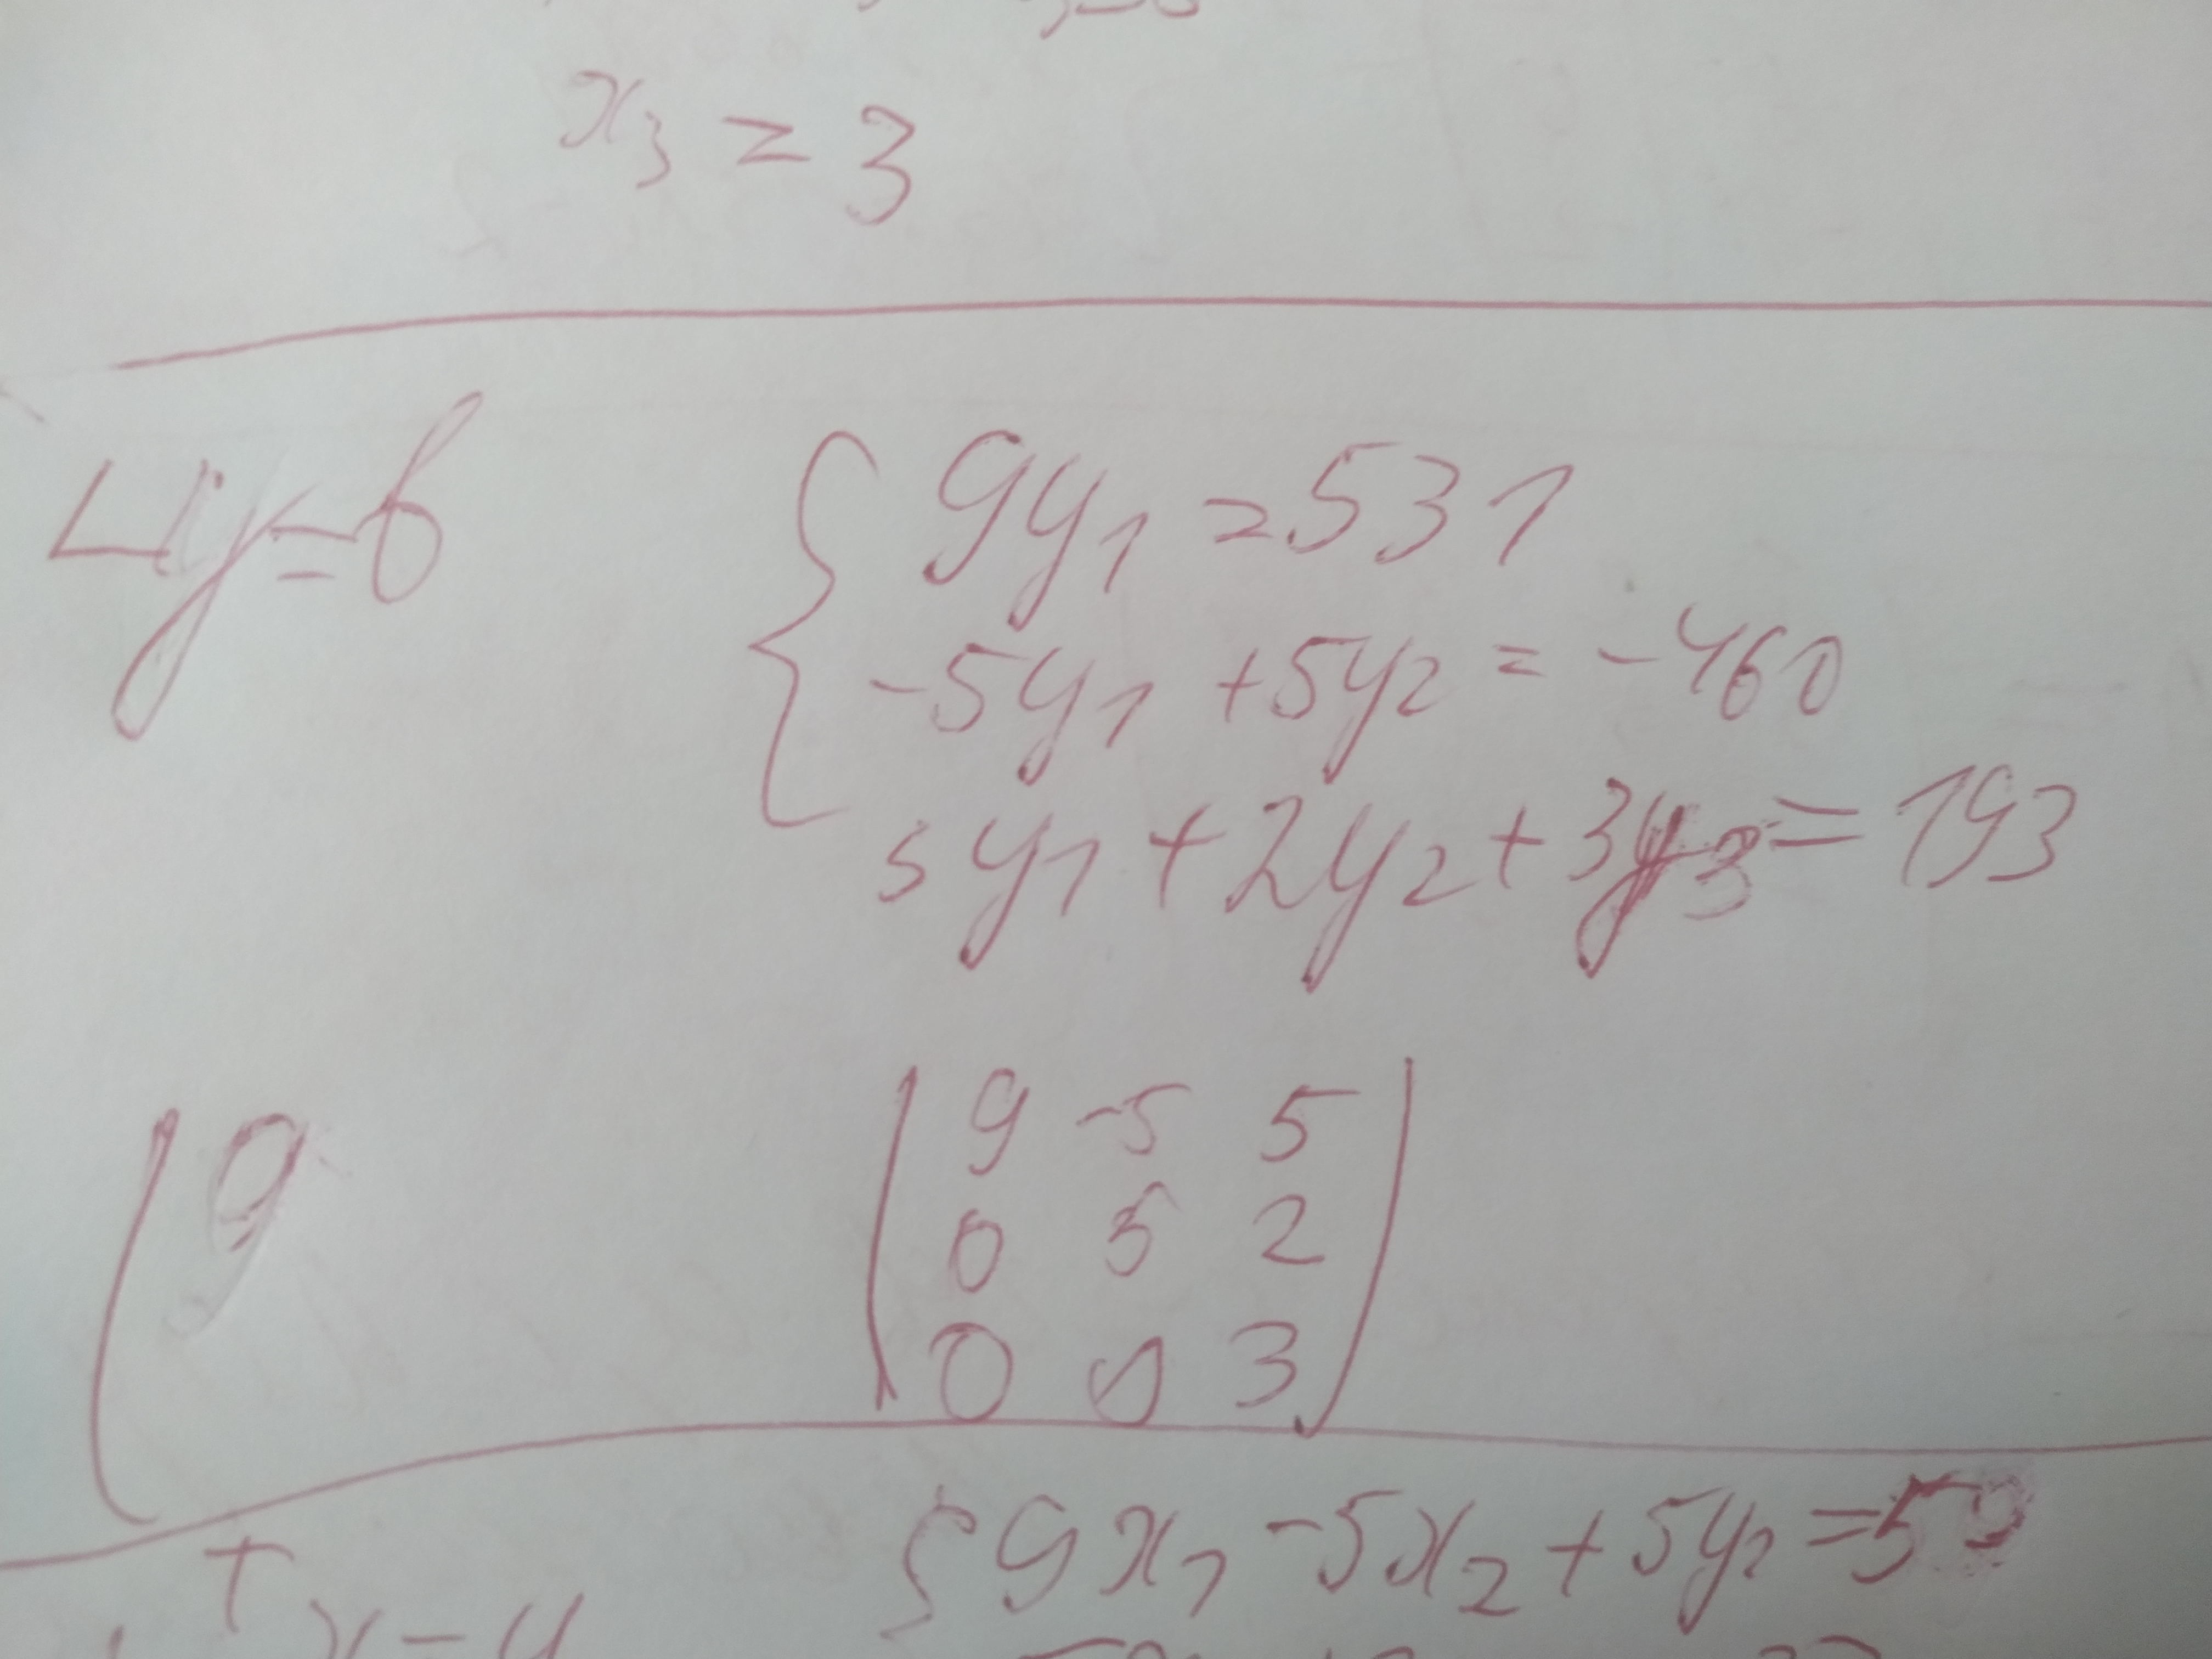 x₃ = 3
Ly = b
9y₁ = 531
-5y₁ + 5y₂ = -460
5y₁ + 2y₂ + 3y₃ = 193
9
9 -5 5
0 5 2
0 0 3
9x₁ - 5x₂ + 5y₂ = 59
T
x = y